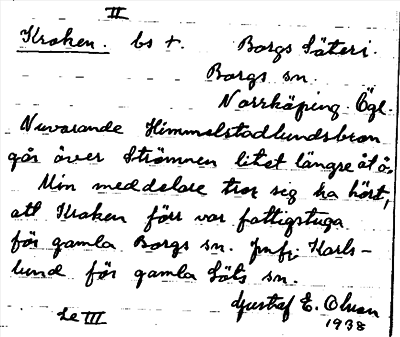 II
Kraken. bs +. Borgs Säteri.
Borgs sn.
Norrköping. Ögl.
Nuvarande Himmelstadlundsbron
går över Strömmen litet längre åt ö.
Min meddelare tror sig ha hört,
att Kraken förr var fattigstuga
för gamla Borgs sn. Jmfr. Karls-
lund för gamla Löts sn.
Gustaf E. Olsson
Se III 1938